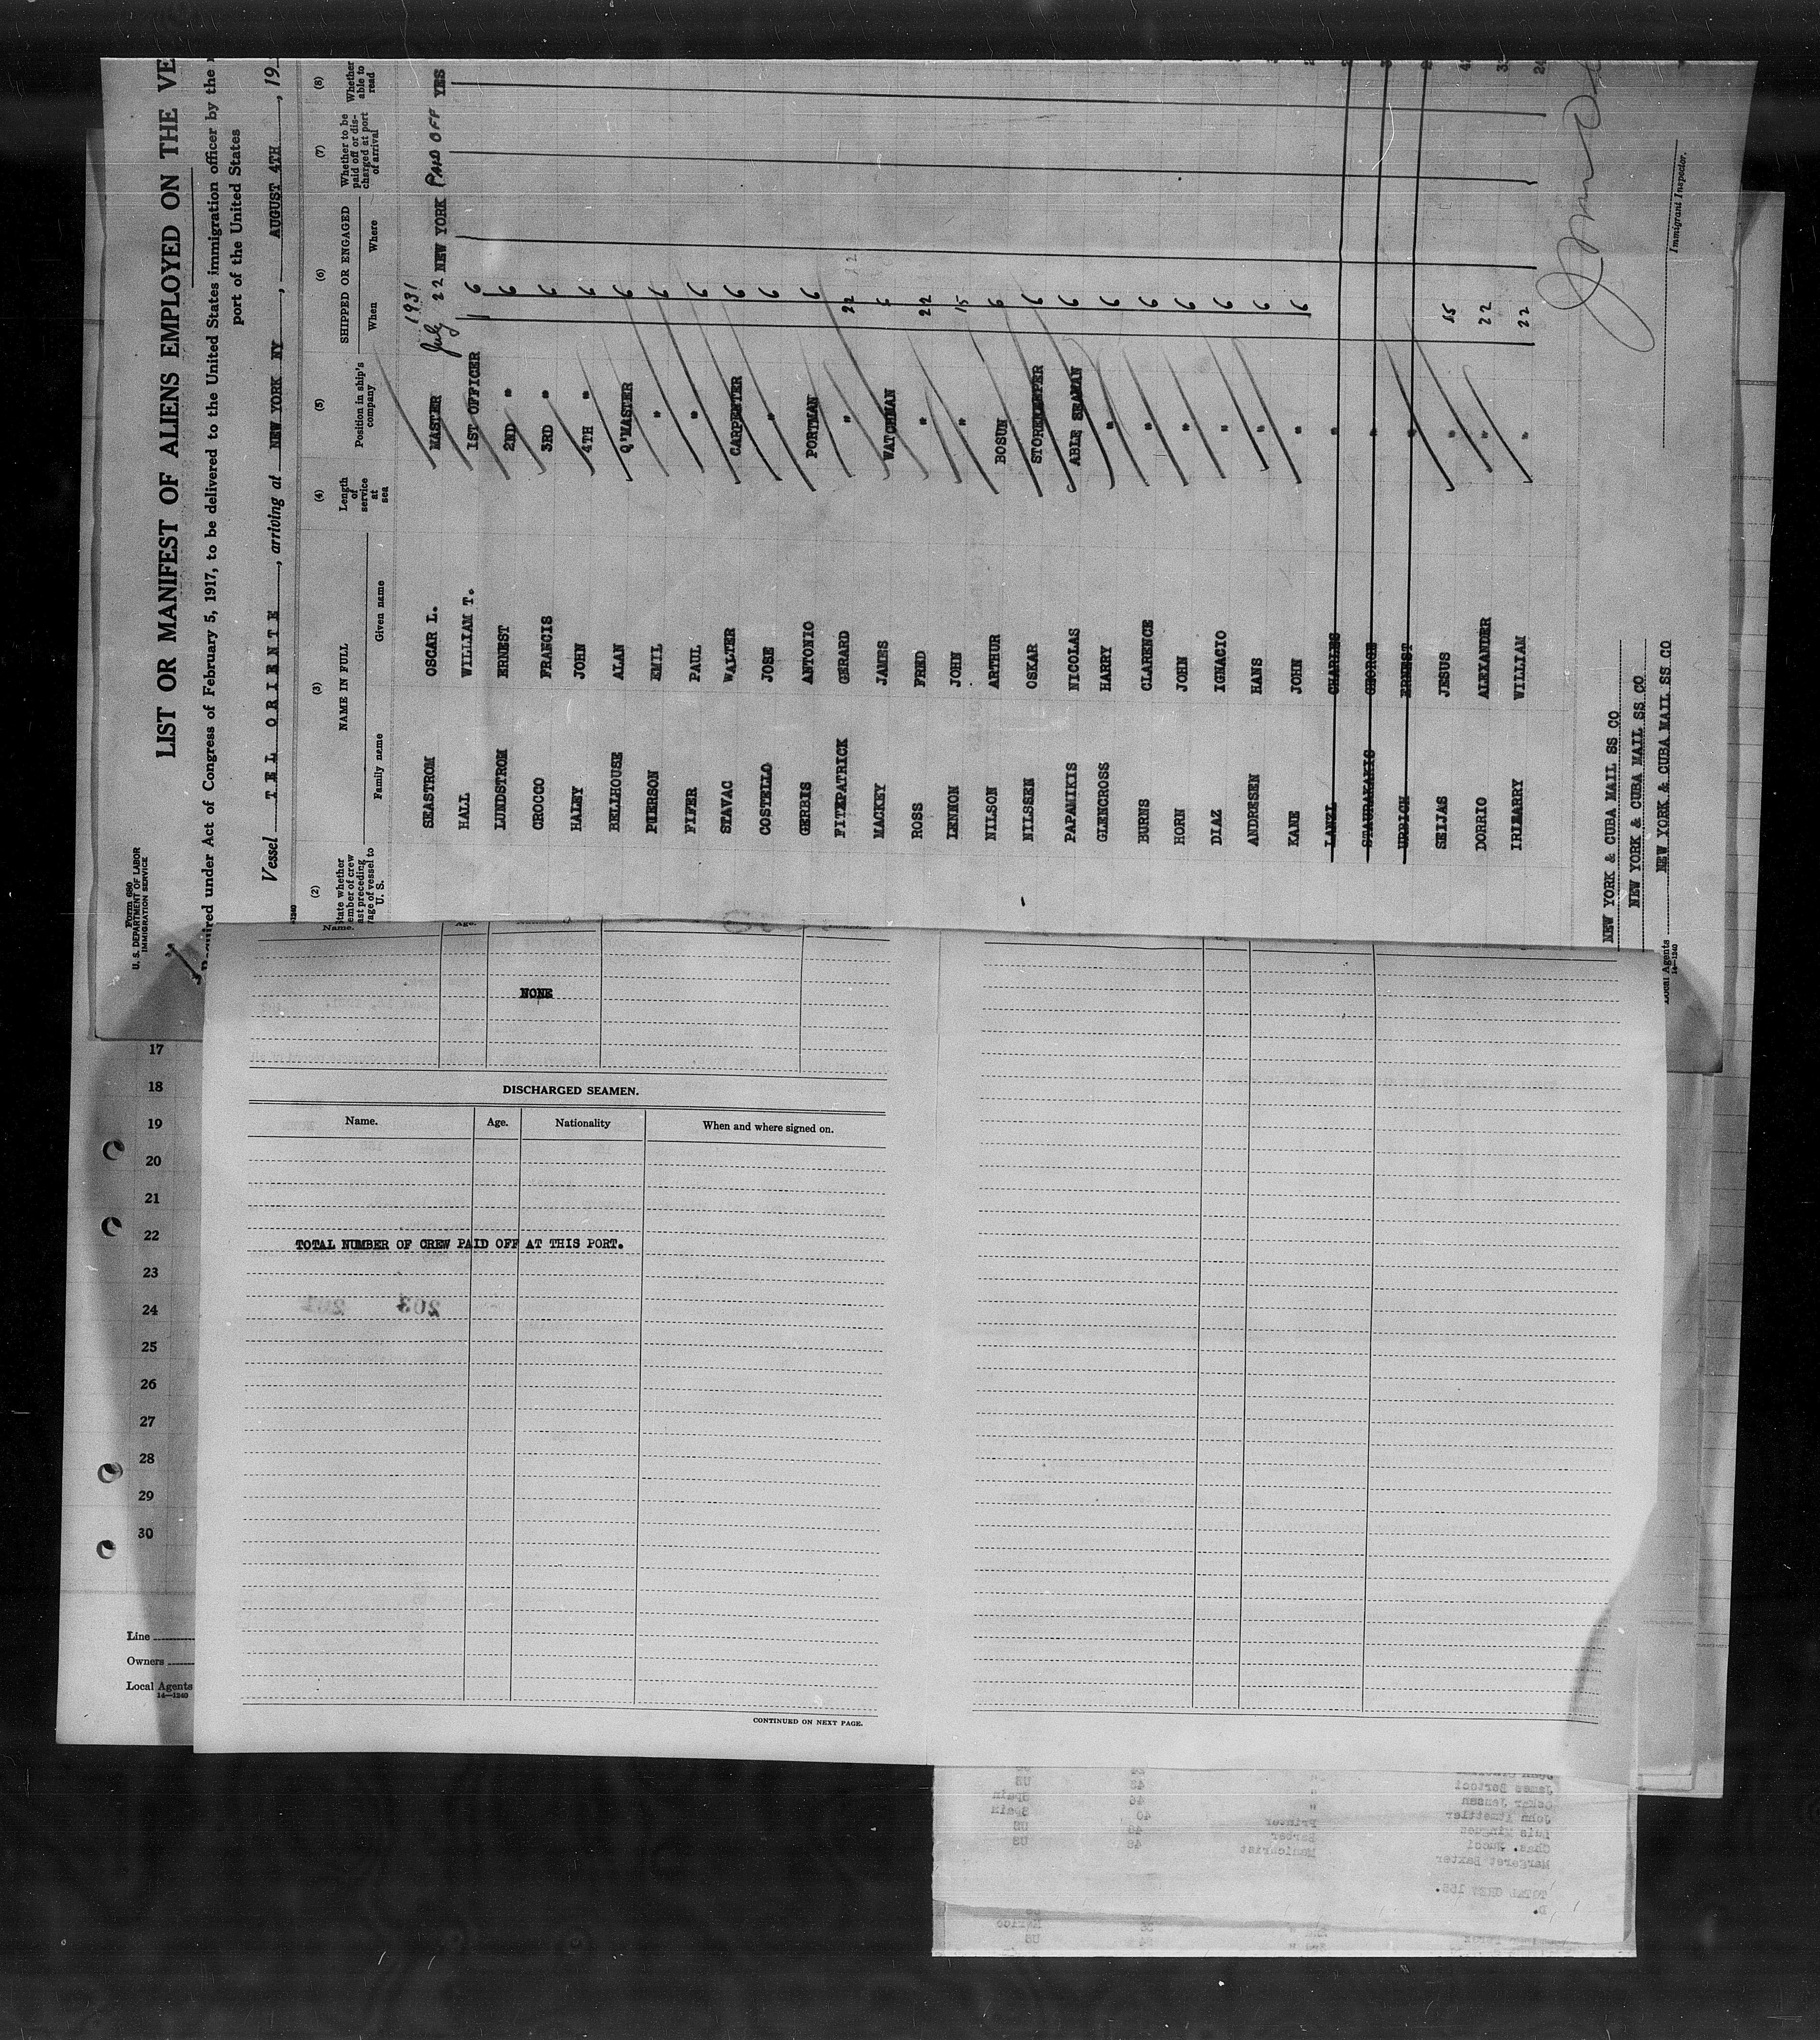 Form 680
U. S. DEPARTMENT OF LABOR
IMMIGRATION SERVICE
LIST OR MANIFEST OF ALIENS EMPLOYED ON THE VE
Required under Act of Congress of February 5, 1917, to be delivered to the United States immigration officer by the
port of the United States
Vessel T E L ORIENTE, arriving at NEW YORK NY, AUGUST 4TH, 19
(2) (3) (4) (5) (6) (7) (8)
NAME IN FULL
Family name Given name
Length of service at sea
Position in ship's company
SHIPPED OR ENGAGED
When Where
Whether to be paid off or discharged at port of arrival
Whether able to read
1931
SEASTROM OSCAR L. MASTER July 22 NEW YORK PAID OFF YES
HALL WILLIAM T. 1ST OFFICER 6
LUNDSTROM ERNEST 2ND " 6
CROCCO FRANCIS 3RD " 6
HALEY JOHN 4TH " 6
BELIHOUSE ALAN Q'MASTER 6
PUERSON EMIL " 6
FIFER PAUL " 6
STAVAC WALTER CARPENTER 6
COSTELLO JOSE " 6
GERBIS ANTONIO PORTMAN 6
FITZPATRICK GERARD " 22
MACKEY JAMES WATCHMAN 6
ROSS FRED " 22
LENNON JOHN " 15
NILSON ARTHUR BOSUN 6
NILSSEN OSKAR STOREKEEPER 6
PAPAMIKIS NICOLAS ABLE SEAMAN 6
GLENCROSS HARRY " 6
BURNS CLARENCE " 6
HORN JOHN " 6
DIAZ IGNACIO " 6
ANDRESEN HANS " 6
KANE JOHN " 6
LANZL CHARLES "
STAURAKAKIS GEORGE "
URBICH ERNEST "
SEIJAS JESUS " 15
DORRIO ALEXANDER " 22
IRIBARRY WILLIAM " 22
NEW YORK & CUBA MAIL SS CO
NEW YORK & CUBA MAIL SS CO
Local Agents NEW YORK & CUBA MAIL SS CO
14—1240
Immigrant Inspector.
Name. Age.
NONE
DISCHARGED SEAMEN.
Name. Age. Nationality When and where signed on.
TOTAL NUMBER OF CREW PAID OFF AT THIS PORT.
203
CONTINUED ON NEXT PAGE.
17
18
19
20
21
22
23
24
25
26
27
28
29
30
Line
Owners
Local Agents
14—1240
James Bertocci " 43 US
Oskar Jensen " 46 Spain
John Atmetller 40 Spain
Luis Mingues Printer 40 US
Chas. Nucci Barber 48 US
Margaret Baxter Manicurist
TOTAL CREW 155.
D.